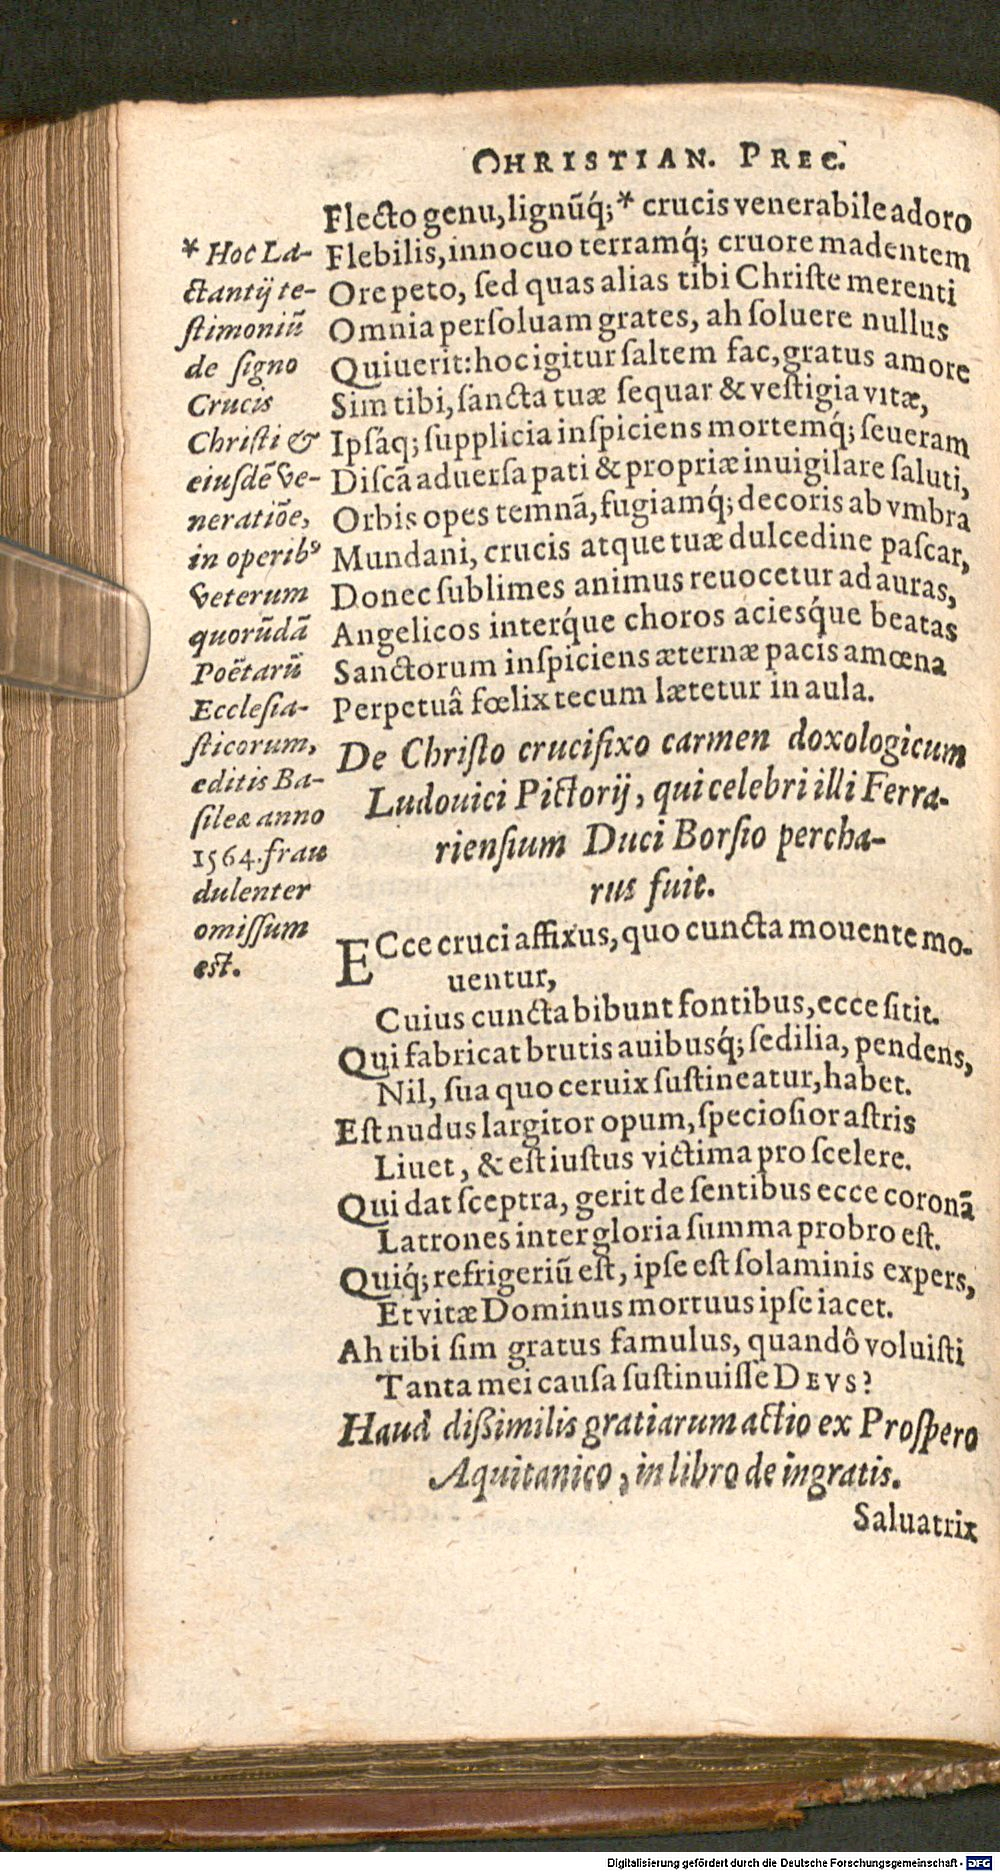 CHRISTIAN. PREC.
Flecto genu, lignũq́; * crucis venerabile adoro
Flebilis, innocuo terramq́; cruore madentem
Ore peto, sed quas alias tibi Christe merenti
Omnia persoluam grates, ah soluere nullus
Quiuerit: hoc igitur saltem fac, gratus amore
Sim tibi, sancta tuæ sequar & vestigia vitæ,
Ipsáq; supplicia inspiciens mortemq́; seueram
Discã aduersa pati & propriæ inuigilare saluti,
Orbis opes temnã, fugiamq́; decoris ab vmbra
Mundani, crucis atque tuæ dulcedine pascar,
Donec sublimes animus reuocetur ad auras,
Angelicos interq́ue choros aciesq́ue beatas
Sanctorum inspiciens æternæ pacis amœna
Perpetuâ fœlix tecum lætetur in aula.
* Hoc La-
ctantij te-
stimoniũ
de signo
Crucis
Christi &
eiusdẽ ve-
neratiõe,
in operibꝰ
veterum
quorũdã
Poëtarũ
Ecclesia-
sticorum,
editis Ba-
sileæ anno
1564. frau
dulenter
omissum
est.
De Christo crucifixo carmen doxologicum
Ludouici Pictorij, qui celebri illi Ferra-
riensium Duci Borsio percha-
rus fuit.
ECce cruci affixus, quo cuncta mouente mo-
uentur,
Cuius cuncta bibunt fontibus, ecce sitit.
Qui fabricat brutis auibusq́; sedilia, pendens,
Nil, sua quo ceruix sustineatur, habet.
Est nudus largitor opum, speciosior astris
Liuet, & est iustus victima pro scelere.
Qui dat sceptra, gerit de sentibus ecce coronã
Latrones inter gloria summa probro est.
Quiq́; refrigeriũ est, ipse est solaminis expers,
Et vitæ Dominus mortuus ipse iacet.
Ah tibi sim gratus famulus, quandô voluisti
Tanta mei causa sustinuisse DEVS?
Haud dißimilis gratiarum actio ex Prospero
Aquitanico, in libro de ingratis.
Saluatrix
Digitalisierung gefördert durch die Deutsche Forschungsgemeinschaft - DFG